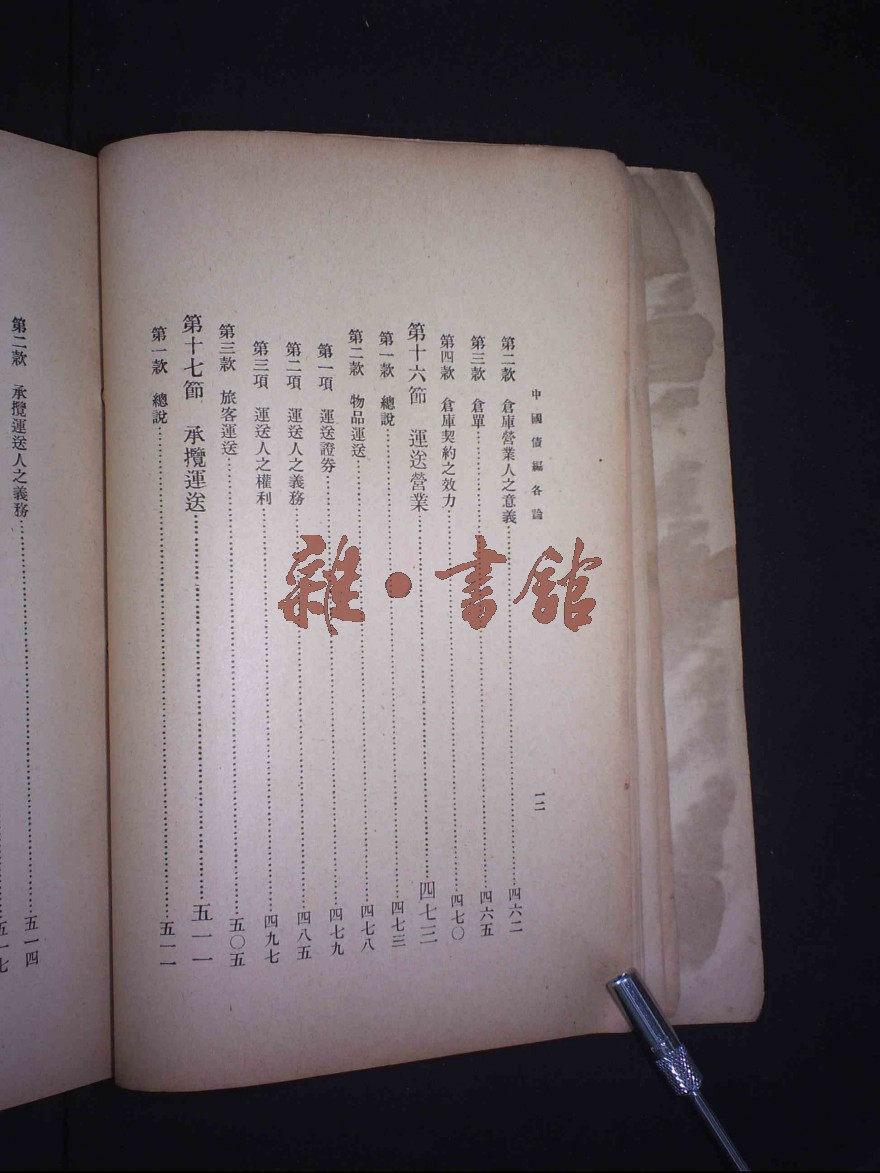 中國債編各論
一二
第二款 倉庫營業人之意義……四六二
第三款 倉單……四六五
第四款 倉庫契約之效力……四七〇
第十六節 運送營業……四七三
第一款 總說……四七三
第二款 物品運送……四七八
第一項 運送證券……四七九
第二項 運送人之義務……四八五
第三項 運送人之權利……四九七
第三款 旅客運送……五〇五
第十七節 承攬運送……五一一
第一款 總說……五一一
第二款 承攬運送人之義務……五一四
五一七
雜·書館